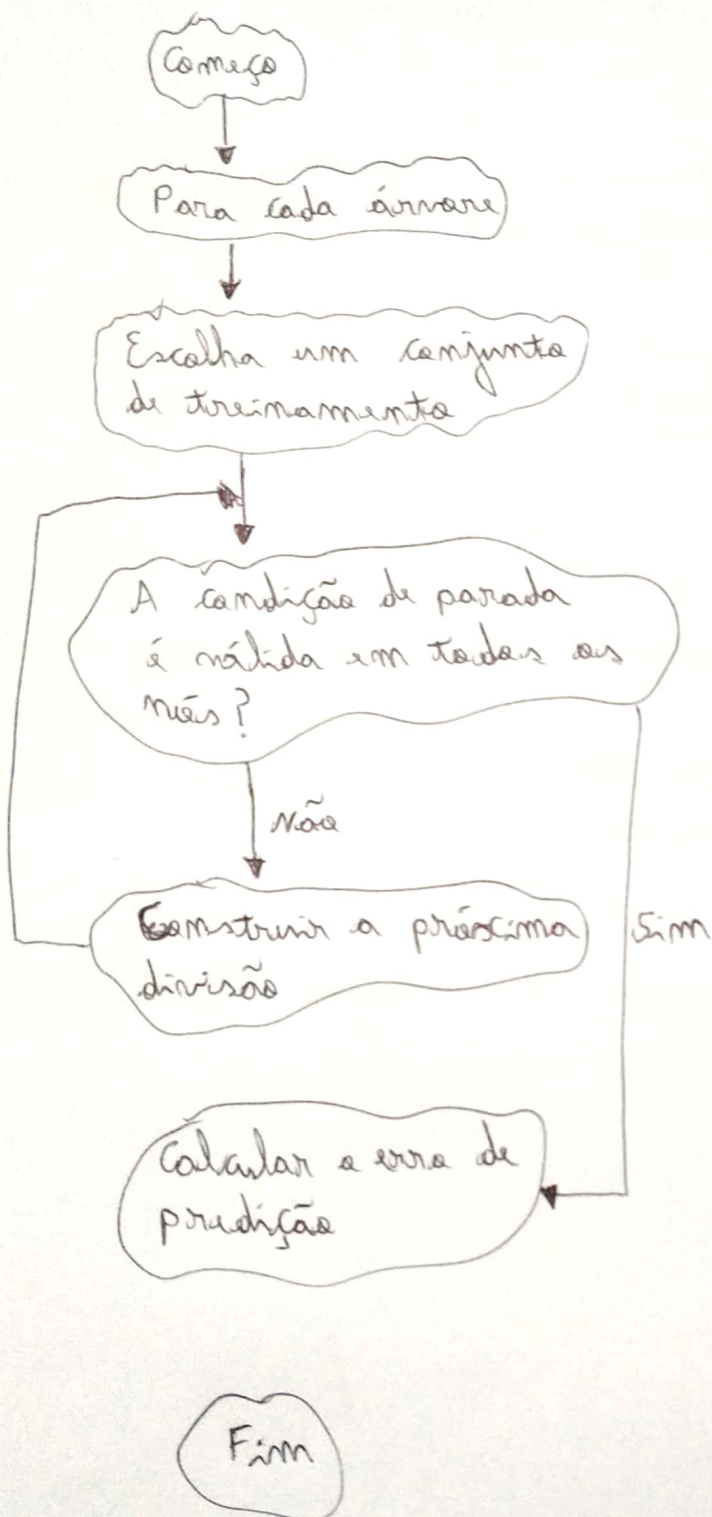 Começo
Para cada árvore
Escolha um conjunto
de treinamento
A condição de parada
é válida em todos os
nós?
Não
Construir a próxima
divisão
Sim
Calcular o erro de
predição
Fim